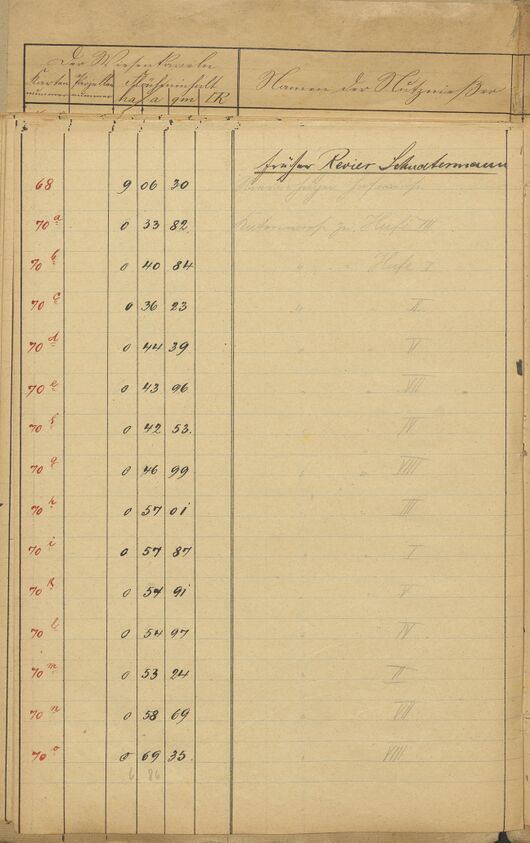 Der Wiesenkaveln
Karten nummer Parzellen nummer Flächeninhalt ha a qm □R
Namen der Nutznießer
früher Revier
68 9 06 30
70 a 0 33 82. zu Hufe III
70 b 0 40 84 " " Hufe I
70 c 0 36 23 " " II
70 d 0 44 39 " " V
70 e 0 43 96 " " VII
70 f 0 42 53. " " IV
70 g 0 46 99 " " VIII
70 h 0 57 01 " " III
70 i 0 57 87 " " I
70 k 0 54 91 " " V
70 l 0 54 97 " " IV
70 m 0 53 24 " " II
70 n 0 58 69 " " VII
70 o 0 69 35. " " VIII
6 86